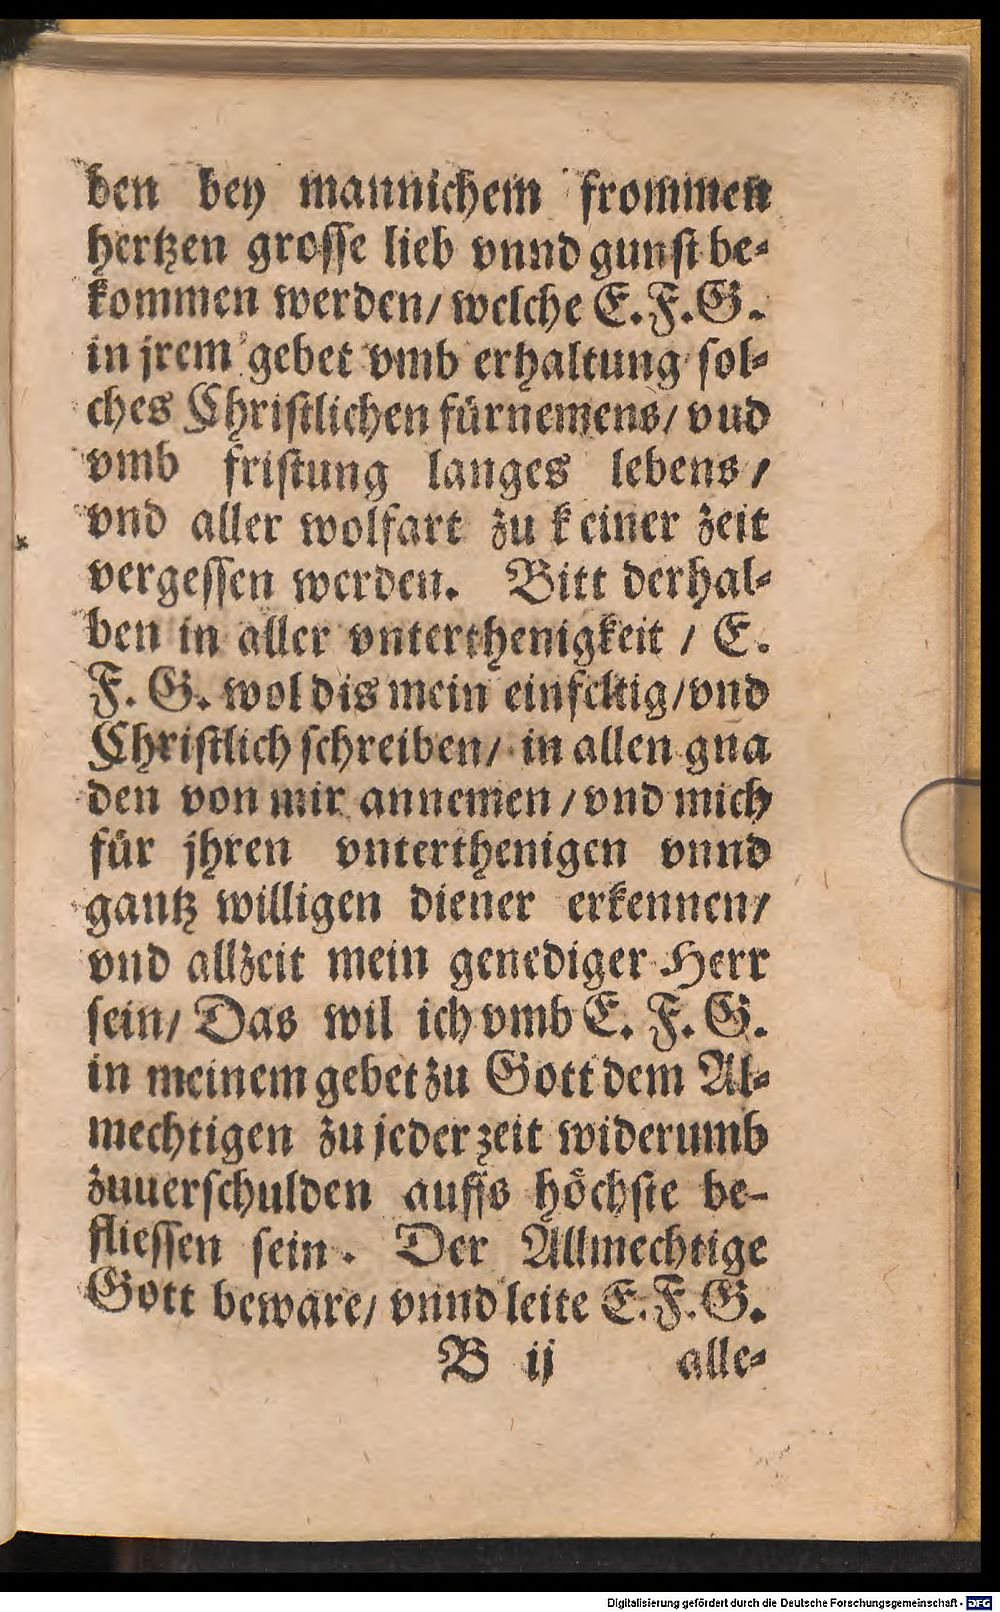 ben bey mannichem frommen
hertzen grosse lieb vnnd gunst be⸗
kommen werden/ welche E. F. G.
in jrem gebet vmb erhaltung sol⸗
ches Christlichen fürnemens/ vnd
vmb fristung langes lebens/
vnd aller wolfart zu keiner zeit
vergessen werden. Bitt derhal⸗
ben in aller vnterthenigkeit / E.
F. G. wol dis mein einfeltig/ vnd
Christlich schreiben/ in allen gna
den von mir annemen / vnd mich
für jhren vnterthenigen vnnd
gantz willigen diener erkennen/
vnd allzeit mein genediger Herr
sein/ Das wil ich vmb E. F. G.
in meinem gebet zu Gott dem Al⸗
mechtigen zu jeder zeit widerumb
zuuerschulden auffs höchste be-
fliessen sein. Der Allmechtige
Gott beware/ vnnd leite E. F. G.
B ij alle⸗
Digitalisierung gefördert durch die Deutsche Forschungsgemeinschaft - DFG